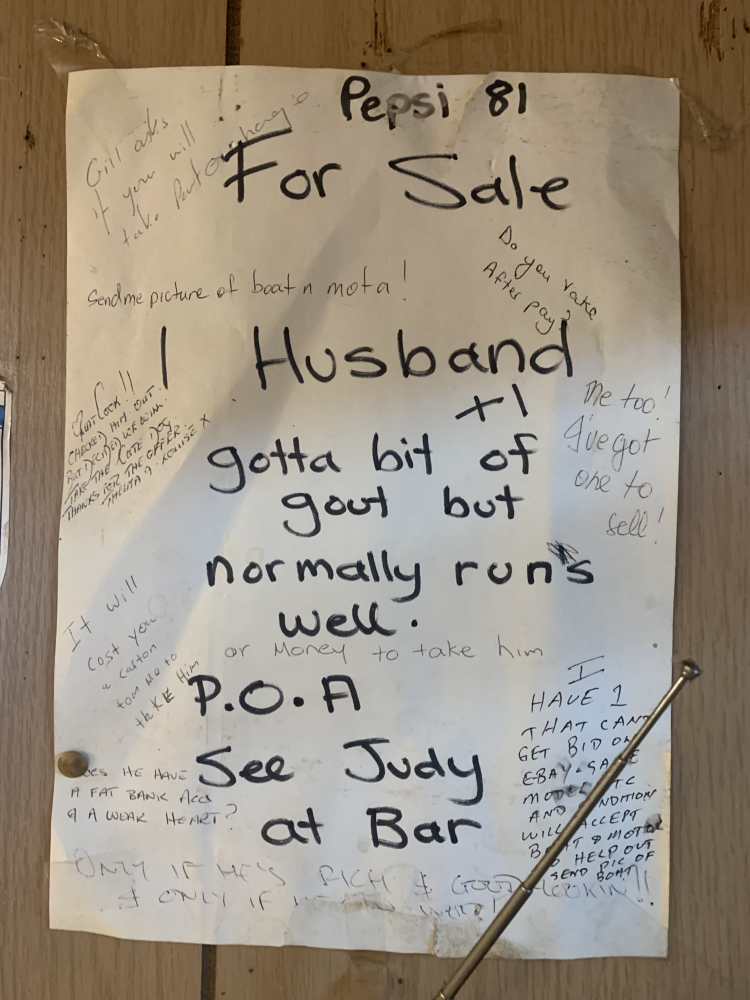 Pepsi 81
Gill asks
if you will
take Part
For Sale
Do you take
After pay?
Send me picture of boat n mota!
1 Husband
+1
gotta bit of
gout but
normally run's
well.
Me too!
I've got
one to
sell!
CHECKED HIM OUT
BUT DECIDED WE
TAKE THE DOG
THANKS FOR THE OFFER.
THELMA & LOUISE X
It will
cost you
a carton
for me to
take Him
or Money to take him
P.O.A
See Judy
at Bar
I
HAVE 1
THAT CANT
GET BID ON
EBAY. SAME
MODEL ETC
AND CONDITION
WILL ACCEPT
BOAT & MOTOR
TO HELP OUT
SEND PIC OF
BOAT
DOES HE HAVE
A FAT BANK Acc
& A WEAK HEART?
ONLY IF HE'S RICH & GOOD LOOKIN!!
& ONLY IF